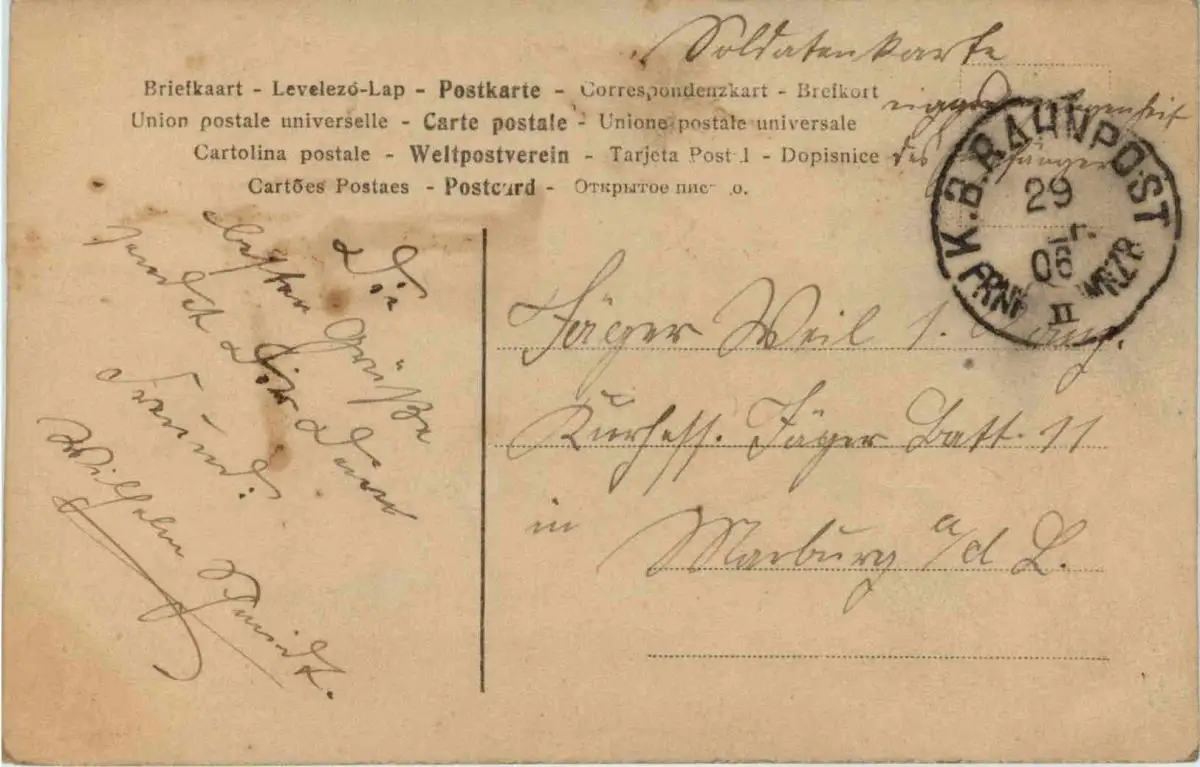 Soldatenkarte
Briefkaart - Levelező-Lap - Postkarte - Correspondenzkart - Brefkort
Union postale universelle - Carte postale - Unione postale universale
Cartolina postale - Weltpostverein - Tarjeta Postal - Dopisnice
Cartões Postaes - Postcard - Открытое
des Empfängers
K.B.BAHNPOST
29
06
II
Die
besten Grüße
sendet Dir Dein
Freund:
Wilhelm Schmidt.
Jäger Weil 1.
Kurhess. Jäger Batt. 11
in Marburg a/d L.